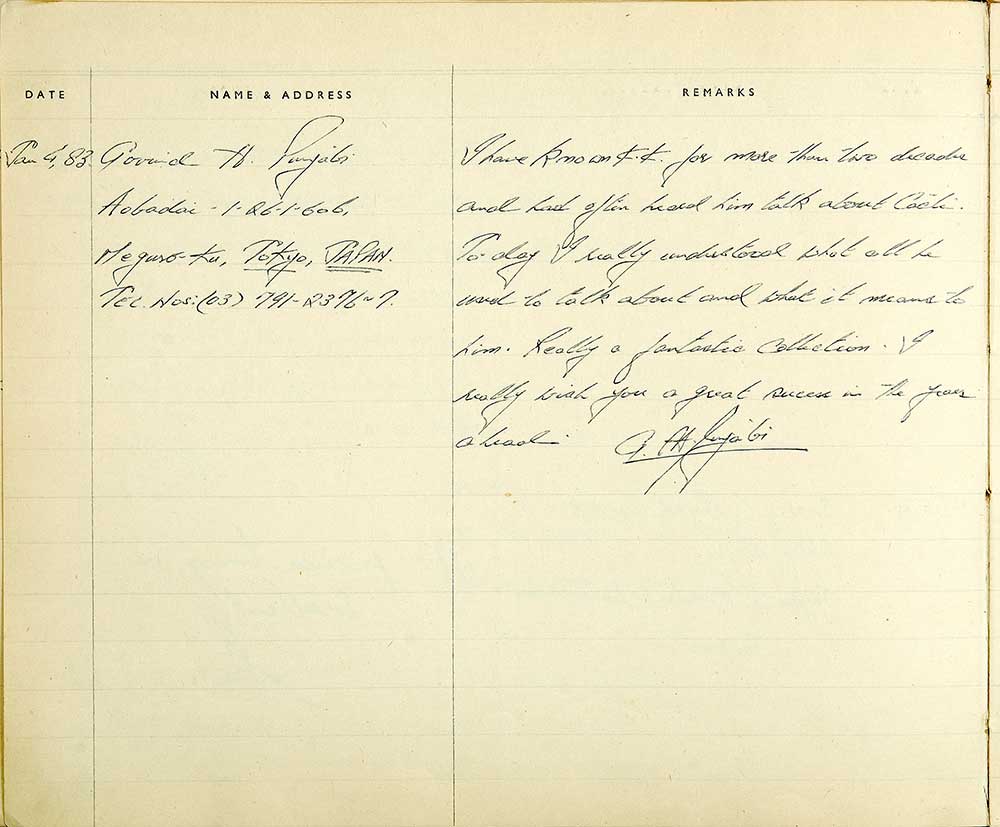 DATE NAME & ADDRESS REMARKS
Jan 4, 83. Govind H. Punjabi
Aobadai - 1-26-1-606,
Meguro-Ku, Tokyo, JAPAN.
Tel. Nos: (03) 791-2376~7.
I have known K.K. for more than two decades
and had often heard him talk about Cacti.
To-day I really understood what all he
used to talk about and what it means to
him. Really a fantastic collection. I
really wish you a great success in the years
ahead.
G. H. Punjabi